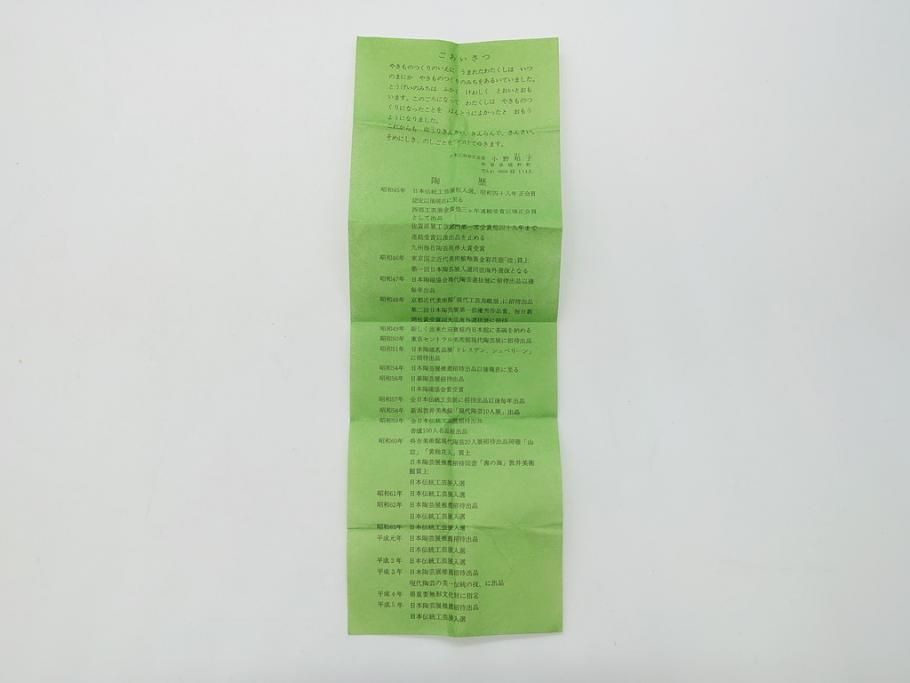 ごあいさつ
やきものつくりのいえに うまれたわたくしは いつ
のまにか やきものつくりのみちをあるいていました。
とうげいのみちは ふかく けわしく とおいとおも
います。このごろになって わたくしは やきものつ
くりになったことを ほんとうによかったと おもう
ようになりました。
これからも ゆうりきんかい、きんらんで、きんさい、
そめにしき、のしごとを てゆきます。
小野珀子
陶歴
昭和45年 日本伝統工芸展初入選、昭和四十八年正会員
認定以後現在に至る
西部工芸展金賞他三ヶ年連続受賞以後正会員
として出品
佐賀県展工芸部門第一席受賞他四十九年まで
連続受賞以後出品を止める
九州毎日陶芸展件大賞受賞
昭和46年 東京国立近代美術館釉裏金彩花壺「 」買上
第一回日本陶芸展入選同壺海外選抜となる
昭和47年 日本陶磁協会現代陶芸選抜展に招待出品以後
毎年出品
昭和48年 京都近代美術館「現代工芸鳥瞰展」に招待出品
第二回日本陶芸展第一部優秀作品賞、毎日新
聞社賞受賞同大皿海外選抜展に招待
昭和49年 新しく出来た 館内日本館に茶碗を納める
昭和50年 東京セントラル美術館現代陶芸展に招待出品
昭和51年 日本陶磁名品展「ドレスデン、シュベリーン」
に招待出品
昭和54年 日本陶芸展推薦招待出品以後現在に至る
昭和56年 日華陶芸展招待出品
日本陶磁協会賞受賞
昭和57年 全日本伝統工芸展に招待出品以後毎年出品
昭和58年 新潟敦井美術館「現代陶芸10人展」出品
昭和59年 全日本伝統工芸展招待出品
香盛100人名品展出品
昭和60年 呉市美術館現代陶芸20人展招待出品同壺「山
」「黄釉花入」買上
日本陶芸展推薦招待同壺「海の 」敦井美術
館買上
日本伝統工芸展入選
昭和61年 日本伝統工芸展入選
昭和62年 日本陶芸展推薦招待出品
日本伝統工芸展入選
昭和63年 日本伝統工芸展入選
平成元年 日本陶芸展推薦招待出品
日本伝統工芸展入選
平成2年 日本伝統工芸展入選
平成3年 日本陶芸展推薦招待出品
現代陶芸の美－伝統の技、に出品
平成4年 県重要無形文化財に指定
平成5年 日本陶芸展推薦招待出品
日本伝統工芸展入選